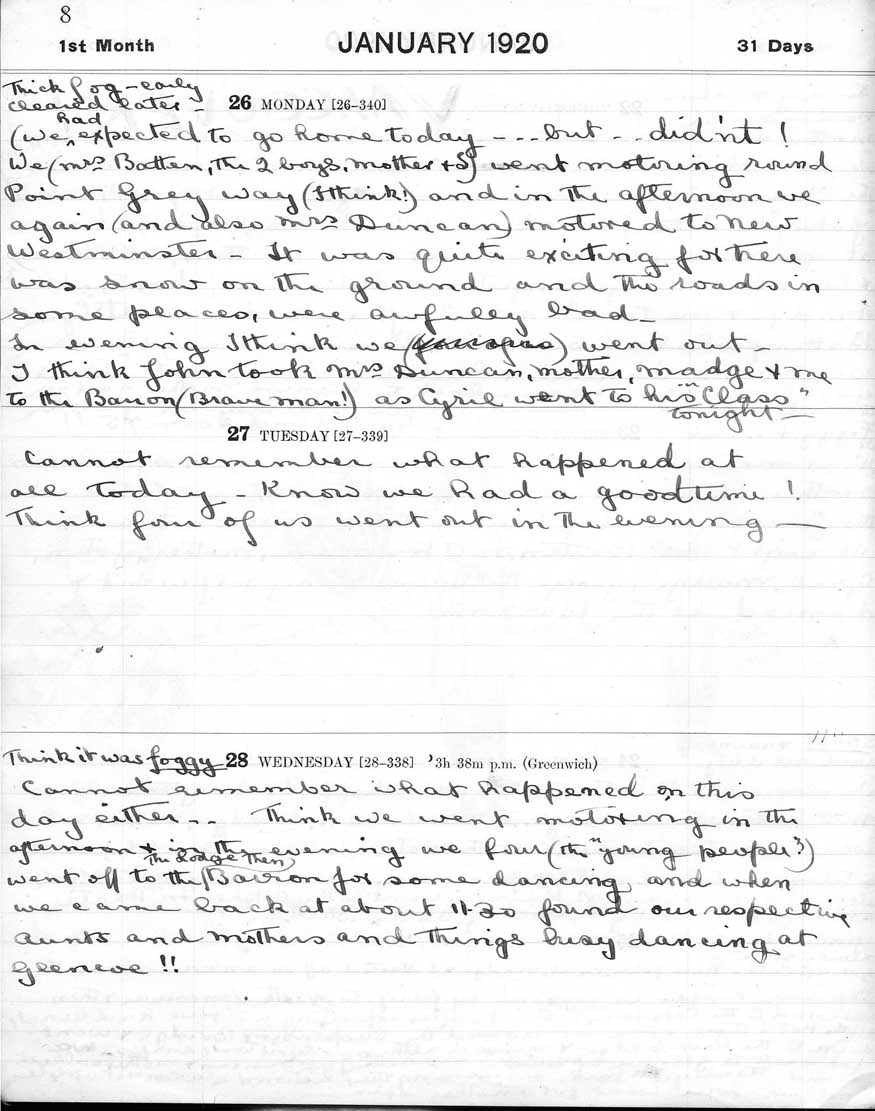 8
1st Month JANUARY 1920 31 Days
Thick fog - early
cleared later - 26 MONDAY [26-340]
had
(we ^ expected to go home today - - . but - . . did'nt !
We (Mrs Batten, the 2 boys, mother & I) went motoring round
Point Grey way (I think!) and in the afternoon we
again (and also Mrs Duncan) motored to New
Westminster - It was quite exciting for there
was snow on the ground and the roads in
some places, were awfully bad -
In evening I think we ( ) went out -
I think John took Mrs Duncan, mother, Madge & me
to the Barron (Brave man!) as Cyril went to his "Class"
tonight -
27 TUESDAY [27-339]
Cannot remember what happened at
all today - Know we had a good time !
Think four of us went out in the evening -
Think it was foggy 28 WEDNESDAY [28-338] 3h 38m p.m. (Greenwich)
Cannot remember what happened on this
day either - . Think we went motoring in the
afternoon & in the evening we four (the "young people"?)
The Lodge Then
went off to the Barron for some dancing and when
we came back at about 11-30 found our respective
aunts and mothers and things busy dancing at
Glencoe !!